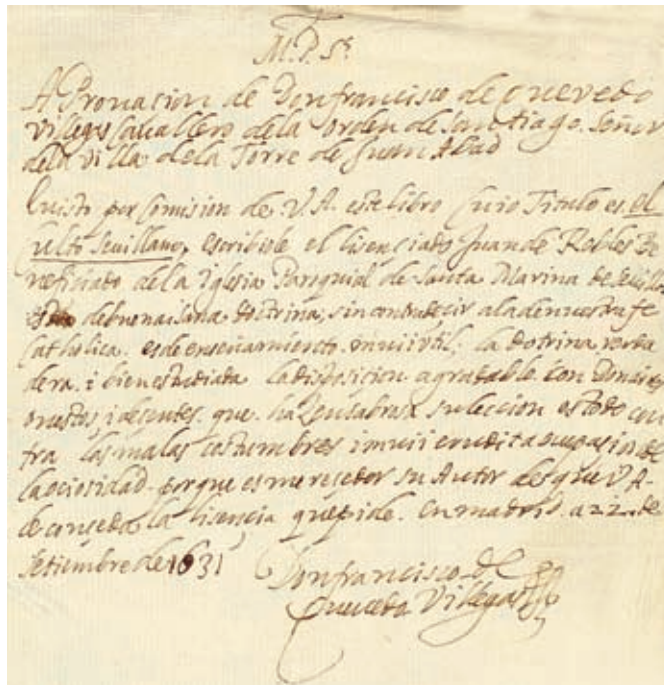 M. P. Sr.
A Provacion de Don francisco de Quevedo
villegas Cavallero de la orden de Santiago. Señor
de la Villa de la Torre de Juan Abad
E visto por Comision de V. A. este libro Cuio Titulo es el
Culto Sevillano, escribiole el licenciado Juan de Robles Be
neficiado de la iglesia Paroquial de Santa Marina de Sevilla
de buena i sana doctrina, sin contradecir a la de nuestra fe
Catholica. es de enseñamiento mui util; la dotrina verda
dera. i bien estudiada la disposicion agradable con Donaires
onestos, i decentes. que haçen sabrosa su leccion es todo con
tra las malas costumbres i mui erudita ocupasion de
la ociosidad. porque es meresedor su Autor de que V. A.
le conseda la lisencia que pide. en madrid. a 22. de
Setiembre de 1631
Don francisco de
Quevedo Villegas